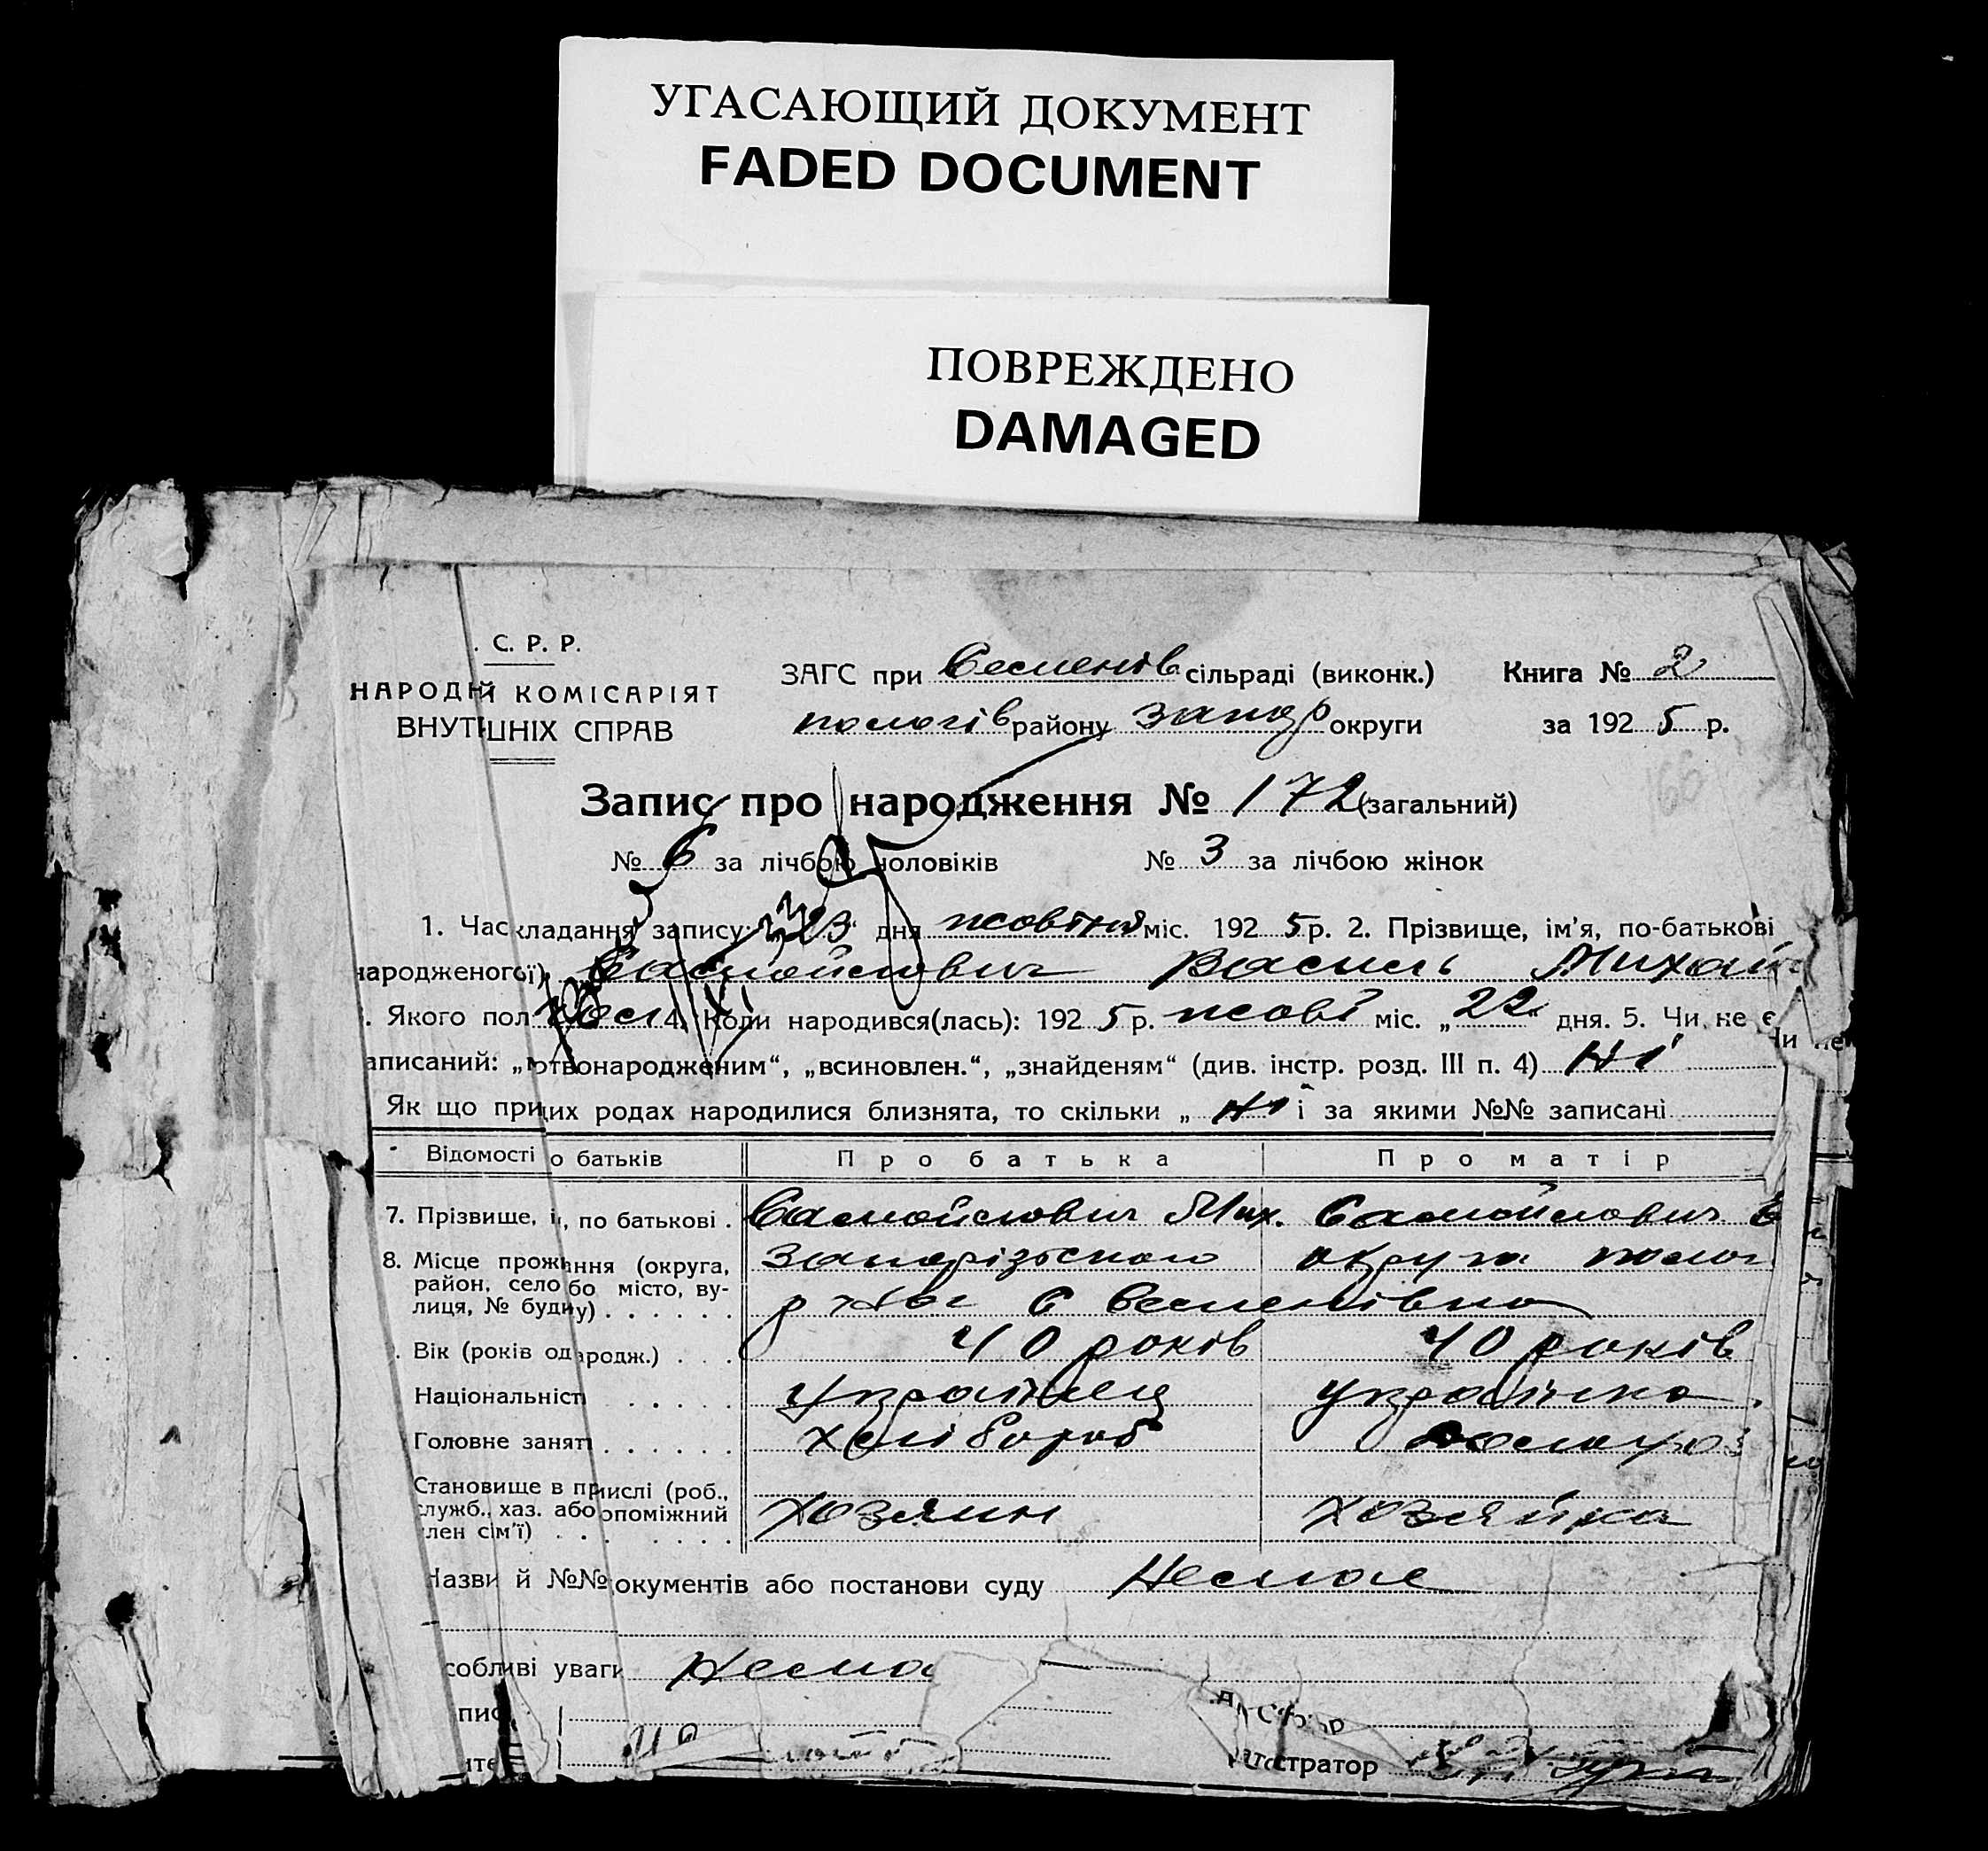 УГАСАЮЩИЙ ДОКУМЕНТ
FADED DOCUMENT
ПОВРЕЖДЕНО
DAMAGED
. С. Р. Р.
НАРОДНІЙ КОМІСАРІЯТ
ВНУТІШНІХ СПРАВ
ЗАГС при сільраді (виконк.) Книга № 2
пологів району Запор округи за 192 5 р.
Запис про народження № 172 (загальний)
№ 6 за лічбою чоловіків № 3 за лічбою жінок
1. Час кладання запису: 23 дня жовтня міс. 192 5 р. 2. Прізвище, ім'я, по-батькові
народженого(ї) Самойлович Василь Михай
. Якого пол 4. Коли народився(лась): 192 5 р. жовт міс. „ 22 " дня. 5. Чи не є
аписаний: „ отвонародженим", „всиновлен.", „знайденям" (див. інстр. розд. III п. 4) Ні
Як що при цих родах народилися близнята, то скільки „ Ні і за якими №№ записані
Відомості о батьків Про батька Про матір
7. Прізвище, і , по батькові . Самойлович Мих. Самойлович
8. Місце прож ння (округа, Запорізького округи полог
район, село бо місто, ву-
лиця, № буд у) . . . . . .
. Вік (років од ародж.) . . . 40 років 40 років
Національніст . . . . . українец українка
Головне занят . . . . . . хлібороб
Становище в п мислі (роб.,
служб., хаз. або опоміжний Хозяин хозяйка
лен сім'ї) . . . . . .
Назви й №№ окументів або постанови суду Немає
собливі уваги Нема
пис
стратор